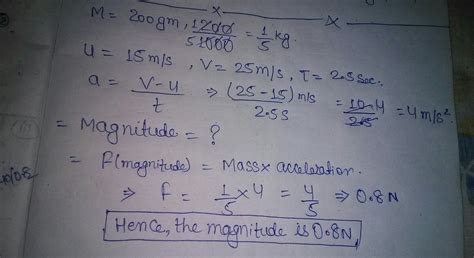 x x
M = 200gm, 1200/51000 = 1/5 kg.
U = 15 m/s, V = 25m/s, T = 2.5 sec.
a = V-u/t ⇒ (25-15) m/s/2.5s = 10 4/2.5 = 4 m/s²
= Magnitude = ?
= F(magnitude) = Mass x acceleration.
⇒ f = 1/5 x 4 = 4/5 ⇒ 0.8N
Hence, the magnitude is 0.8N